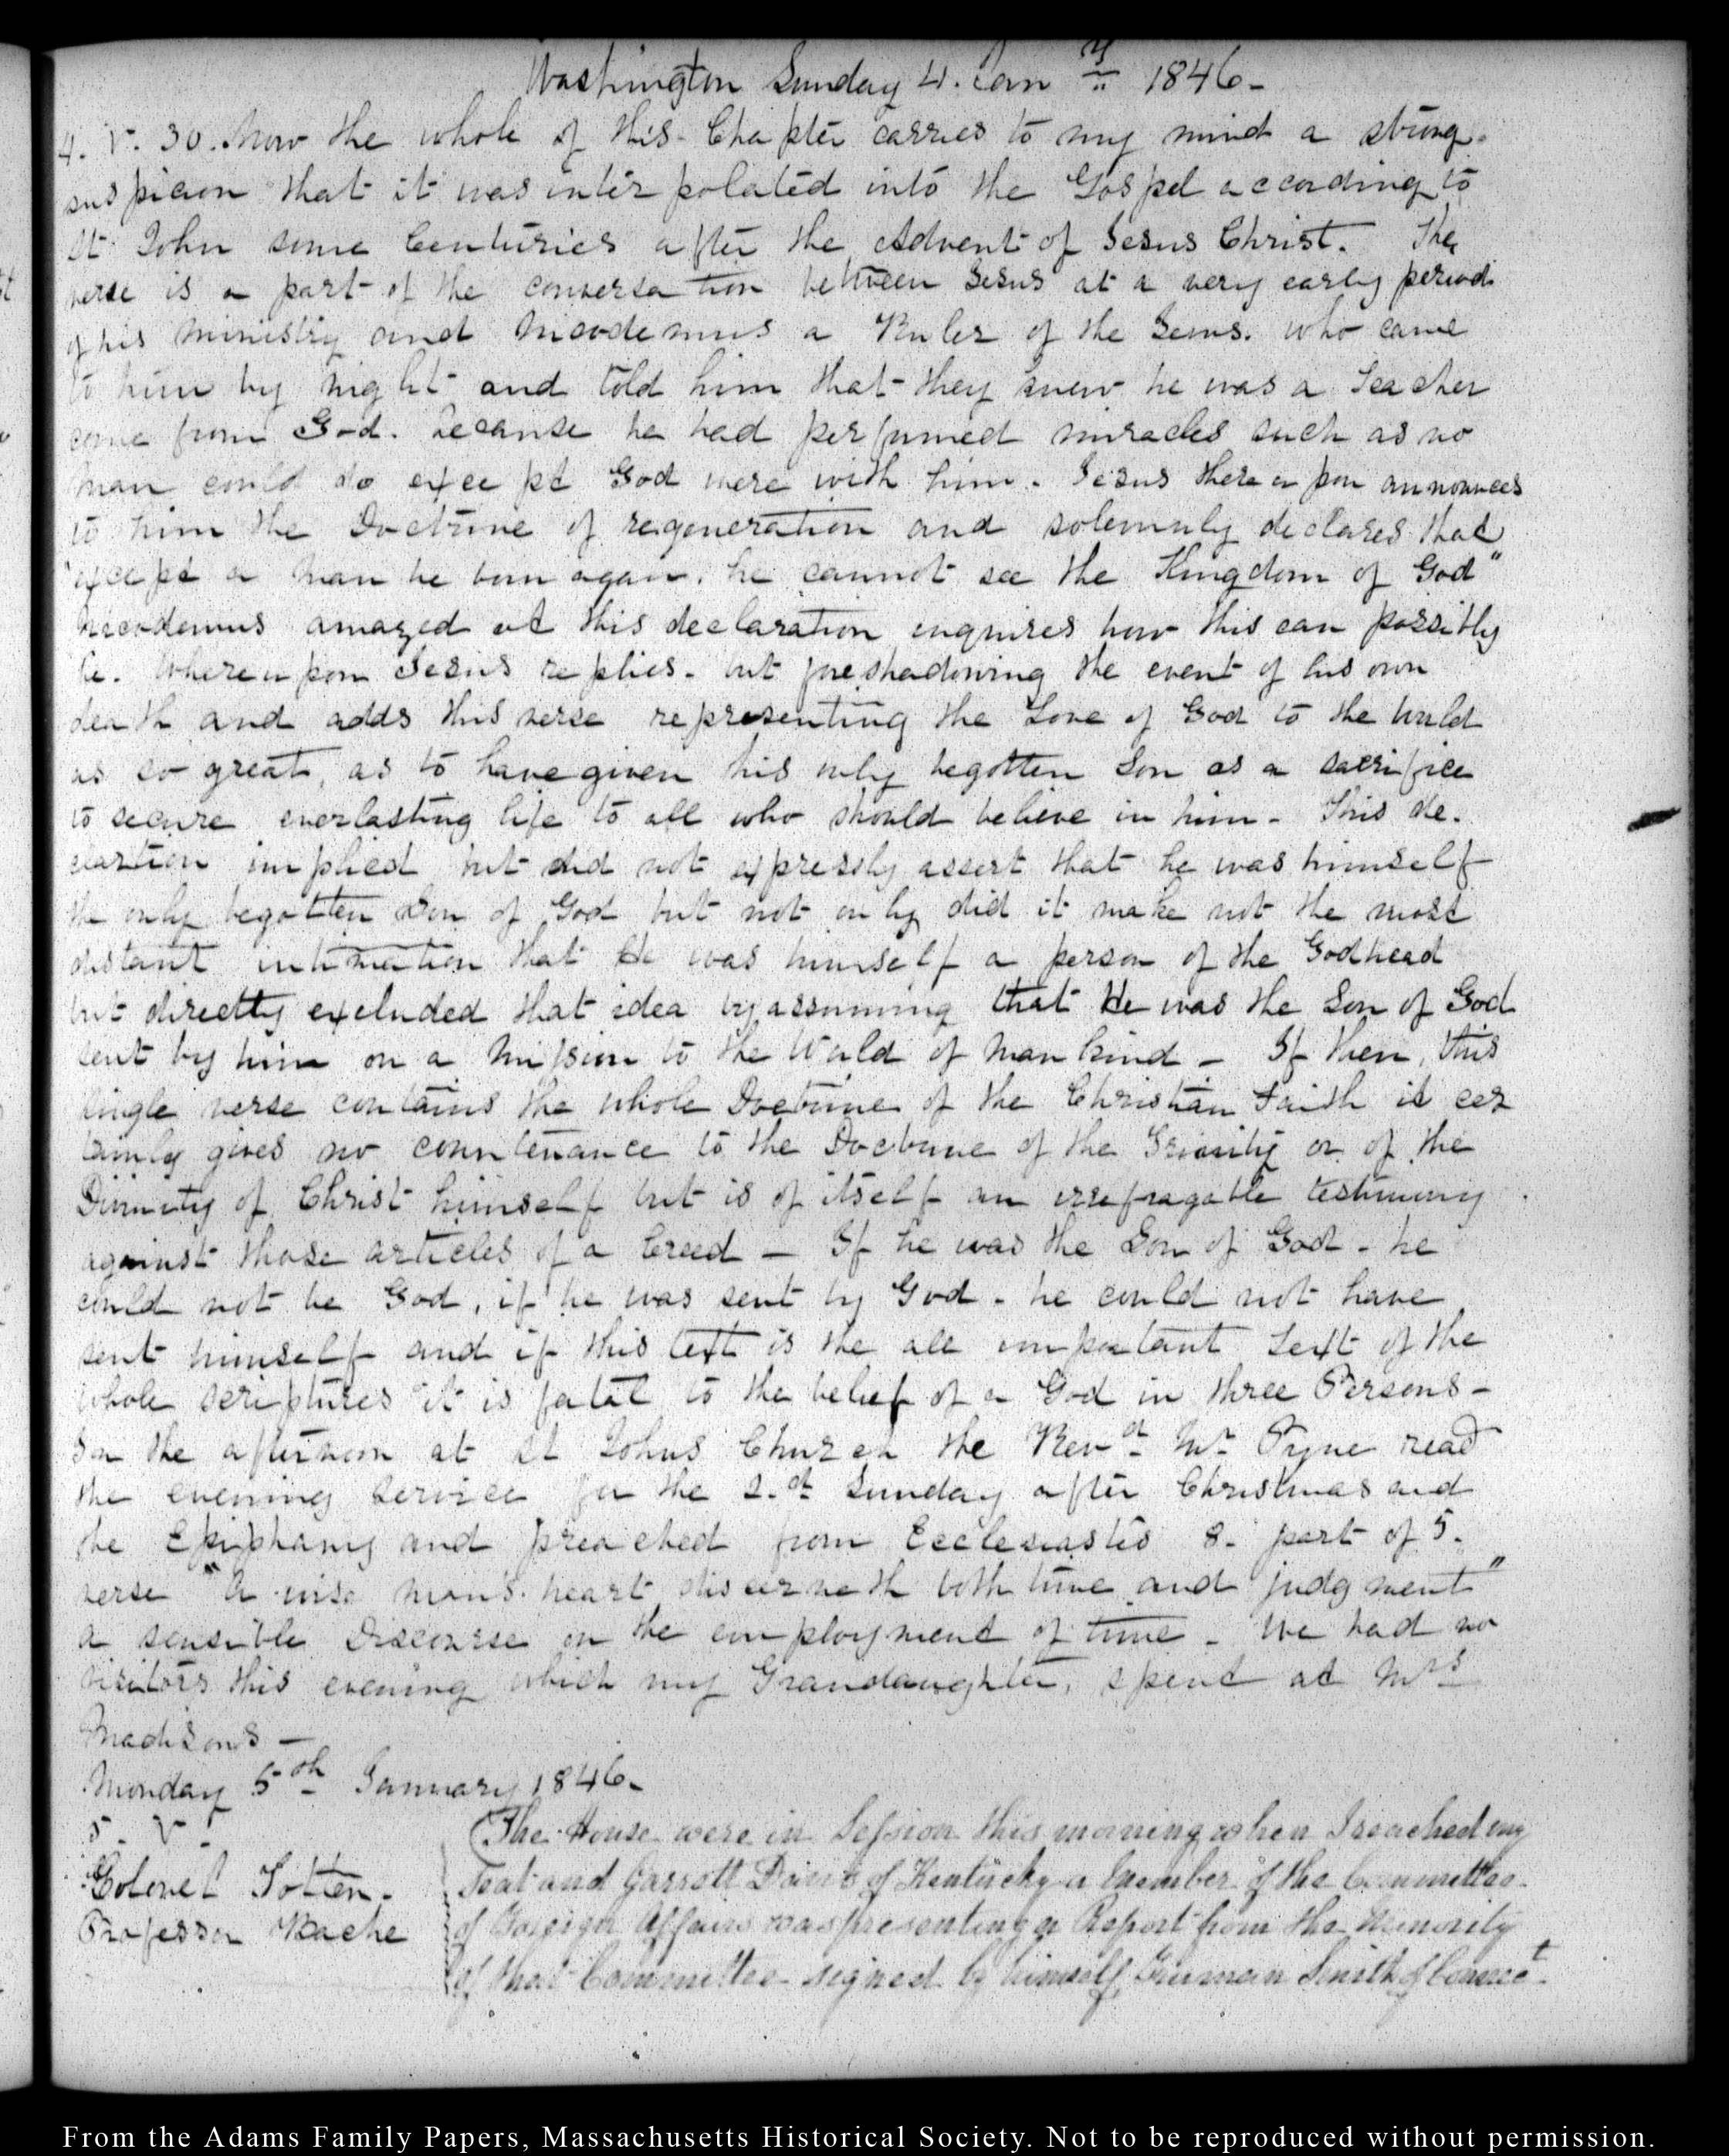 Washington Sunday 4. Jan.y 1846-
4. V. 30. Now the whole of this Chapter carries to my mind a strong
suspicion that it was interpolated into the Gospel according to
St John some Centuries after the Advent of Jesus Christ. The
verse is a part of the conversation between Jesus at a very early period
of his ministry and Nicodemus a Ruler of the Jews. who came
to him by night and told him that they knew he was a Teacher
come from God. because he had performed miracles such as no
man could do except God were with him. Jesus thereupon announces
to him the Doctrine of regeneration and solemnly declares that
"except a man be born again, he cannot see the Kingdom of God"
Nicodemus amazed at this declaration inquires how this can possibly
be. Whereupon Jesus replies. but foreshadowing the event of his own
death and adds this verse representing the Love of God to the World
as so great, as to have given his only begotten Son as a sacrifice
to secure everlasting life to all who should believe in him - This de-
claration implied but did not expressly assert that he was himself
the only begotten Son of God but not only did it make not the most
distant intimation that He was himself a person of the Godhead
but directly excluded that idea by assuming that He was the Son of God
sent by him on a Mission to the World of Mankind - If then, this
single verse contains the whole Doctrine of the Christian Faith it cer
tainly gives no countenance to the Doctrine of the Trinity or of the
Divinity of Christ himself but is of itself an irrefragable testimony
against those articles of a Creed - If he was the Son of God - he
could not be God, if he was sent by God - he could not have
sent himself and if this text is the all important Text of the
whole scriptures it is fatal to the belief of a God in three Persons -
In the afternoon at St Johns Church the Revd Mr Pyne read
the evening service for the 2.d Sunday after Christmas and
the Epiphany and preached from Ecclesiastes 8. part of 5.
verse "A wise man's heart discerneth both time and judgment"
a sensible Discourse on the employment of time - We had no
visitors this evening which my Grandaughter, spent at Mrs
Madisons -
Monday 5th January 1846-
5. V.
Colonel Totten.
Professor Bache
The House were in Session this morning when I reached my
seat and Garrett Davis of Kentucky a Member of the Committee
of Foreign Affairs was presenting a Report from the Minority
of that Committee signed by himself, Truman Smith of Connect
From the Adams Family Papers, Massachusetts Historical Society. Not to be reproduced without permission.